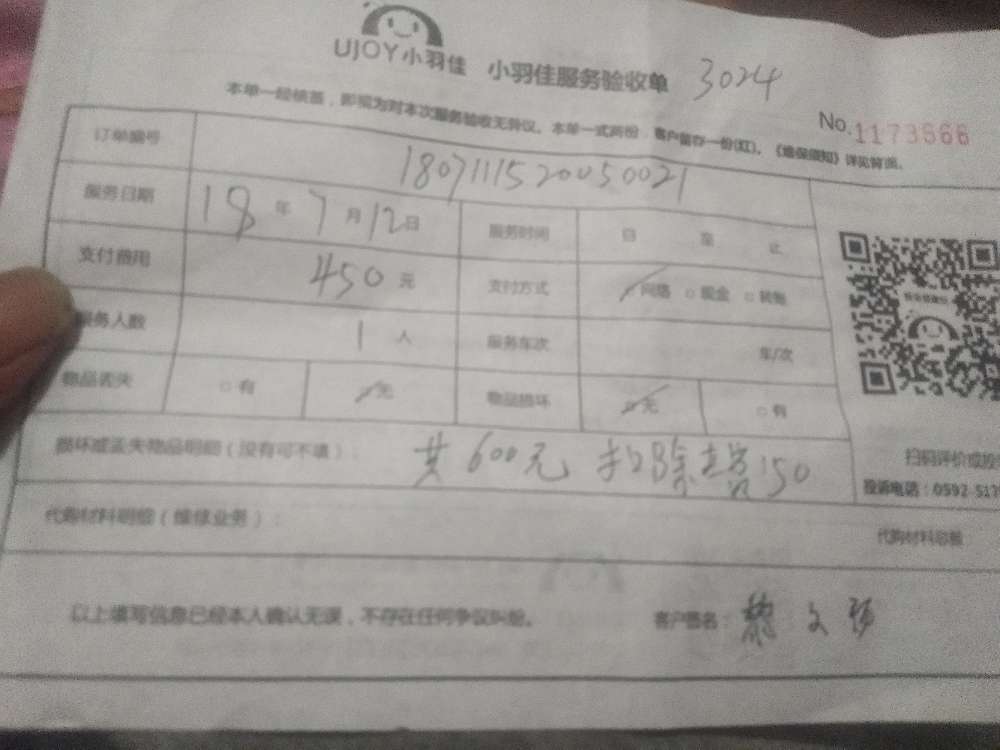 UJOY小羽佳 小羽佳服务验收单 3024
本单一经核签，即视为对本次服务验收无异议。本单一式两份，客户留存一份(红)。《维保须知》详见背面。
No.1173566
订单编号 1807111520050021
服务日期 18 年 7 月 12 日 服务时间 自 至 止
支付费用 450 元 支付方式 网络 □ 现金 □ 转账
服务人数 1 人 服务车次 车/次
物品丢失 □ 有 无 物品损坏 无 □ 有
损坏或丢失物品明细（没有可不填）： 共600元 扣除 150
扫码评价或投
投诉电话：0592 517
代购材料明细（维修业务）： 代购材料总额
以上填写信息已经本人确认无误，不存在任何争议纠纷。 客户签名：